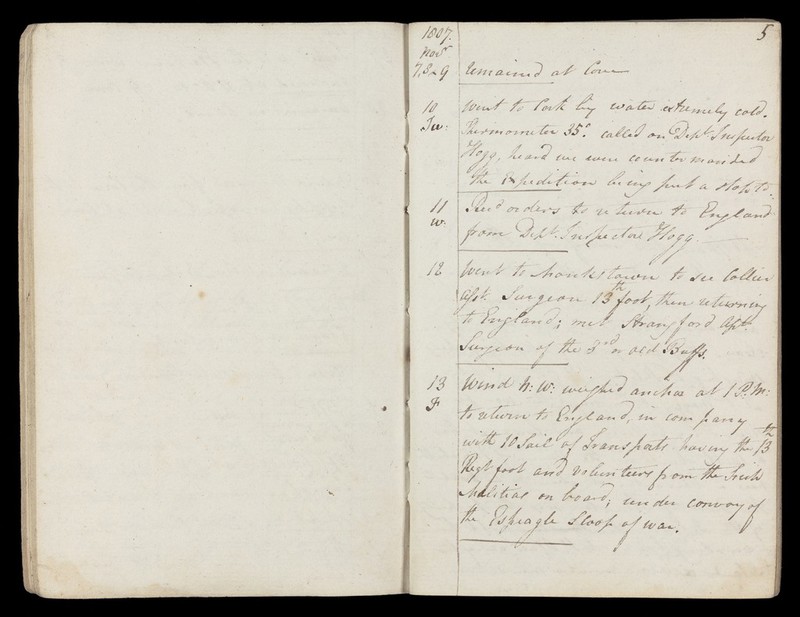 5
1807.
Novr
7, 8 & 9 remained at Cove
10 went to Cork by water extremely cold.
Tu: Thermometer 35°. called on Dept. Inspector
Hogg, heard we were countermanded
the Expedition being put a stop to.
11 Recd orders to return to England
W. from Dept. Inspector Hogg.
12 Went to Monkstown to see Collier
Asst. Surgeon 13th foot, then returning
to England; met Strangford Asst.
Surgeon of the 3rd or old Buffs.
13 Wind N: W: weighed anchor at 1 P: M:
F to return to England, in company
with 10 Sail of Transports having the 13th
Regt foot and volunteers from the Irish
Militias on board; under convoy of
the Espeagle Sloop of war.